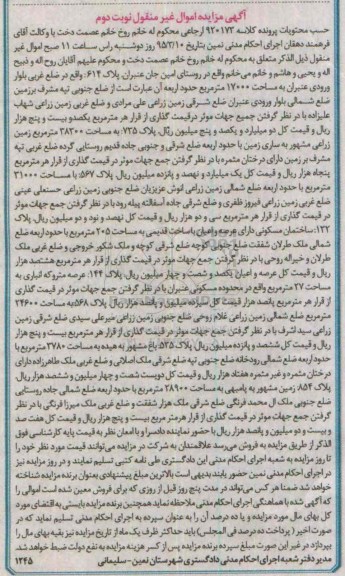 آگهی مزایده اموال غیر منقول نوبت دوم
حسب محتویات پرونده کلاسه ۹۲۰۱۷۳ ارجاعی محکوم له خانم روح خانم عصمت دخت با وکالت آقای
فرهمند دهقان اجرای احکام مدنی نمین بتاریخ ۹۵/۳/۱۰ روز دوشنبه راس ساعت ۱۱ صبح اموال غیر
منقول ذیل الذکر متعلق به محکوم له خانم روح خانم عصمت دخت و محکوم علیهم آقایان روح اله و ذبیح
اله و یحیی و هاشم و خانم می‌خانم واقع در روستای امین جان عنبران، پلاک ۶۱۴: واقع در ضلع غربی بلوار
ورودی عنبران به مساحت ۱۷۰۰۰ مترمربع حدود اربعه آن عبارت است از ضلع جنوبی تپه مشرف برزمین
ضلع شمالی بلوار ورودی عنبران ضلع شرقی زمین زراعی علی مرادی و ضلع غربی زمین زراعی شهاب
علیزاده با در نظر گرفتن جمیع جهات موثر درقیمت گذاری از قرار هر مترمربع یکصدو بیست و پنج هزار
ریال و قیمت کل دو میلیارد و یکصد و پنج میلیون ریال. پلاک ۷۲۵: به مساحت ۳۸۳۰۰ مترمربع زمین
زراعی مشهور به ساری زمین با حدود اربعه ضلع شرقی و جنوبی جاده قدیم روستایی گرده ضلع غربی تپه
مشرف بر زمین دارای درختان مثمره با در نظر گرفتن جمع جهات موثر در قیمت گذاری از قرار هر مترمربع
پنجاه هزار ریال و قیمت کل یک میلیارد و نهصد و پانزده میلیون ریال. پلاک ۵۶۷: با مساحت ۳۱۰۰۰
مترمربع با حدود اربعه ضلع شمالی زمین زراعی انوش عزیزیان ضلع جنوبی زمین زراعی حسنعلی عینی
ضلع غربی زمین زراعی فیروز ظفری و ضلع شرقی جاده آسفالته پیله رود با در نظر گرفتن جمع جهات موثر
در قیمت گذاری از قرار هر مترمربع سی و دو هزار ریال و قیمت کل نهصد و نود و دو میلیون ریال. پلاک
۱۲۲: ساختمان مسکونی دارای عرصه و اعیان باساخت قدیمی به مساحت ۲۰۵ مترمربع با حدود اربعه ضلع
شمالی ملک طرلان شفقت ضلع جنوبی کوچه ضلع شرقی کوچه و ملک شکور خروجی و ضلع غربی ملک
طرلان و خیراله روحی با در نظر گرفتن جمع جهات موثر در قیمت گذاری از قرار هر مترمربع هشتصد هزار
ریال و قیمت کل عرصه و اعیان یکصد و شصت و چهار میلیون ریال. پلاک ۱۴۴: عرصه متروکه انباری به
مساحت ۲۷ مترمربع واقع در محدوده مسکونی عنبران با در نظر گرفتن جمع جهات موثر در قیمت گذاری
از قرار هر مترمربع پانصد هزار ریال قیمت کل سیزده میلیون و پانصد هزار ریال. پلاک ۵۶۸: به مساحت ۲۴۶۰۰
مترمربع ضلع شمالی زمین زراعی غلام روحی ضلع جنوبی زمین زراعی میرعلی سیدی ضلع شرقی زمین
زراعی سید اشرف با در نظر گرفتن جمع جهات موثر در قیمت گذاری از قرار هر مترمربع بیست و پنج هزار
ریال و قیمت کل ششصد و پانزده میلیون ریال. پلاک ۵۲۵ باغ مشهور به هیده به مساحت ۳۷۸۰ مترمربع با
حدود اربعه ضلع شمالی رودخانه ضلع جنوبی تپه ضلع شرقی ملک اصلانی و ضلع غربی ملک طاهرزاده دارای
درختان مثمره و غیر مثمره هفتاد هزار ریال و قیمت کل دویست شصت و چهار میلیون و ششصد هزار ریال.
پلاک ۸۵۴ زمین مشهور به پامیهی به مساحت ۲۸۹۰۰ مترمربع با حدود اربعه ضلع شمالی جاده روستایی
ضلع جنوبی ملک ال محمد فرنگی ضلع شرقی ملک هزار شفقت و ضلع غربی ملک میرزا فرنگی با در نظر
گرفتن جمع جهات موثر در قیمت گذاری از قرار هر متر مربع بیست و پنج هزار ریال و قیمت کل هفت صد
و بیست و دو میلیون و پانصد هزار ریال با حضور نماینده دادسرا و با امعان نظر به قیمت پایه کارشناسی فوق
الذکر از طریق مزایده به فروش می‌رسد علاقمندان به شرکت در مزایده می‌توانند قیمت مورد نظر خود را
تا روز مزایده به شعبه اجرای احکام مدنی این دادگستری طی نامه کتبی تسلیم نمایند و در روز مزایده نیز
در اجرای احکام مدنی نمین حضور یابند بدیهی است بالاترین مبلغ پیشنهادی بعنوان برنده مزایده شناخته
خواهد شد ضمنا هر کس می‌تواند در مدت پنج روز قبل از روزی که برای فروش معین شده است اموالی را
که آگهی شده با هماهنگی اجرای احکام مدنی ملاحظه نماید همچنین برنده مزایده بایستی به اقتضای مورد
کل بهای مال مورد مزایده و یا ده درصد آن را به عنوان سپرده به اجرای احکام مدنی تسلیم نماید که در
صورت اخیر (پرداخت ده درصد فی المجلس) باید حداکثر ظرف یک ماه از تاریخ مزایده نیز بقیه بهای مال را
بپردازد در غیر این صورت مبلغ سپرده برنده مزایده پس از کسر هزینه مزایده به نفع دولت ضبط خواهد شد.
مدیر دفتر شعبه اجرای احکام مدنی دادگستری شهرستان نمین - سلیمانی ۱۲۴۵